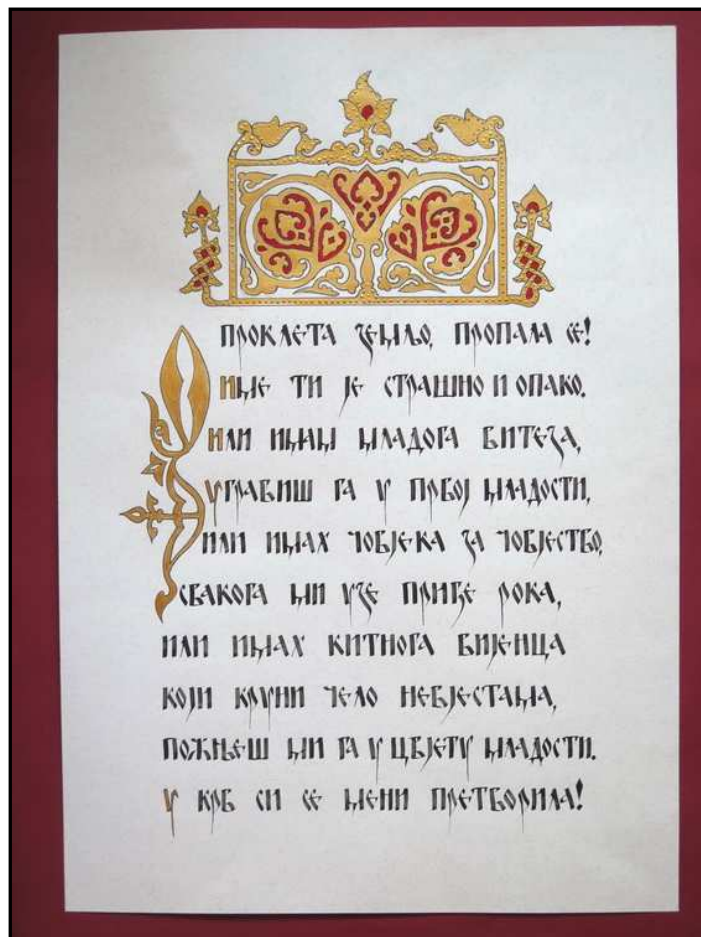 О ПРОКЛЕТА ЗЕМЉО, ПРОПАЛА СЕ!
ИМЕ ТИ ЈЕ СТРАШНО И ОПАКО.
ИЛИ ИМАМ МЛАДОГА ВИТЕЗА,
УГРАБИШ ГА У ПРВОЈ МЛАДОСТИ,
ИЛИ ИМАХ ЧОВЈЕКА ЗА ЧОВЈЕСТВО,
СВАКОГА МИ УЗЕ ПРИЂЕ РОКА,
ИЛИ ИМАХ КИТНОГА ВИЈЕНЦА
КОЈИ КРУНИ ЧЕЛО НЕВЈЕСТАМА,
ПОЖЊЕШ МИ ГА У ЦВЈЕТУ МЛАДОСТИ.
У КРВ СИ СЕ МЕНИ ПРЕТВОРИЛА!